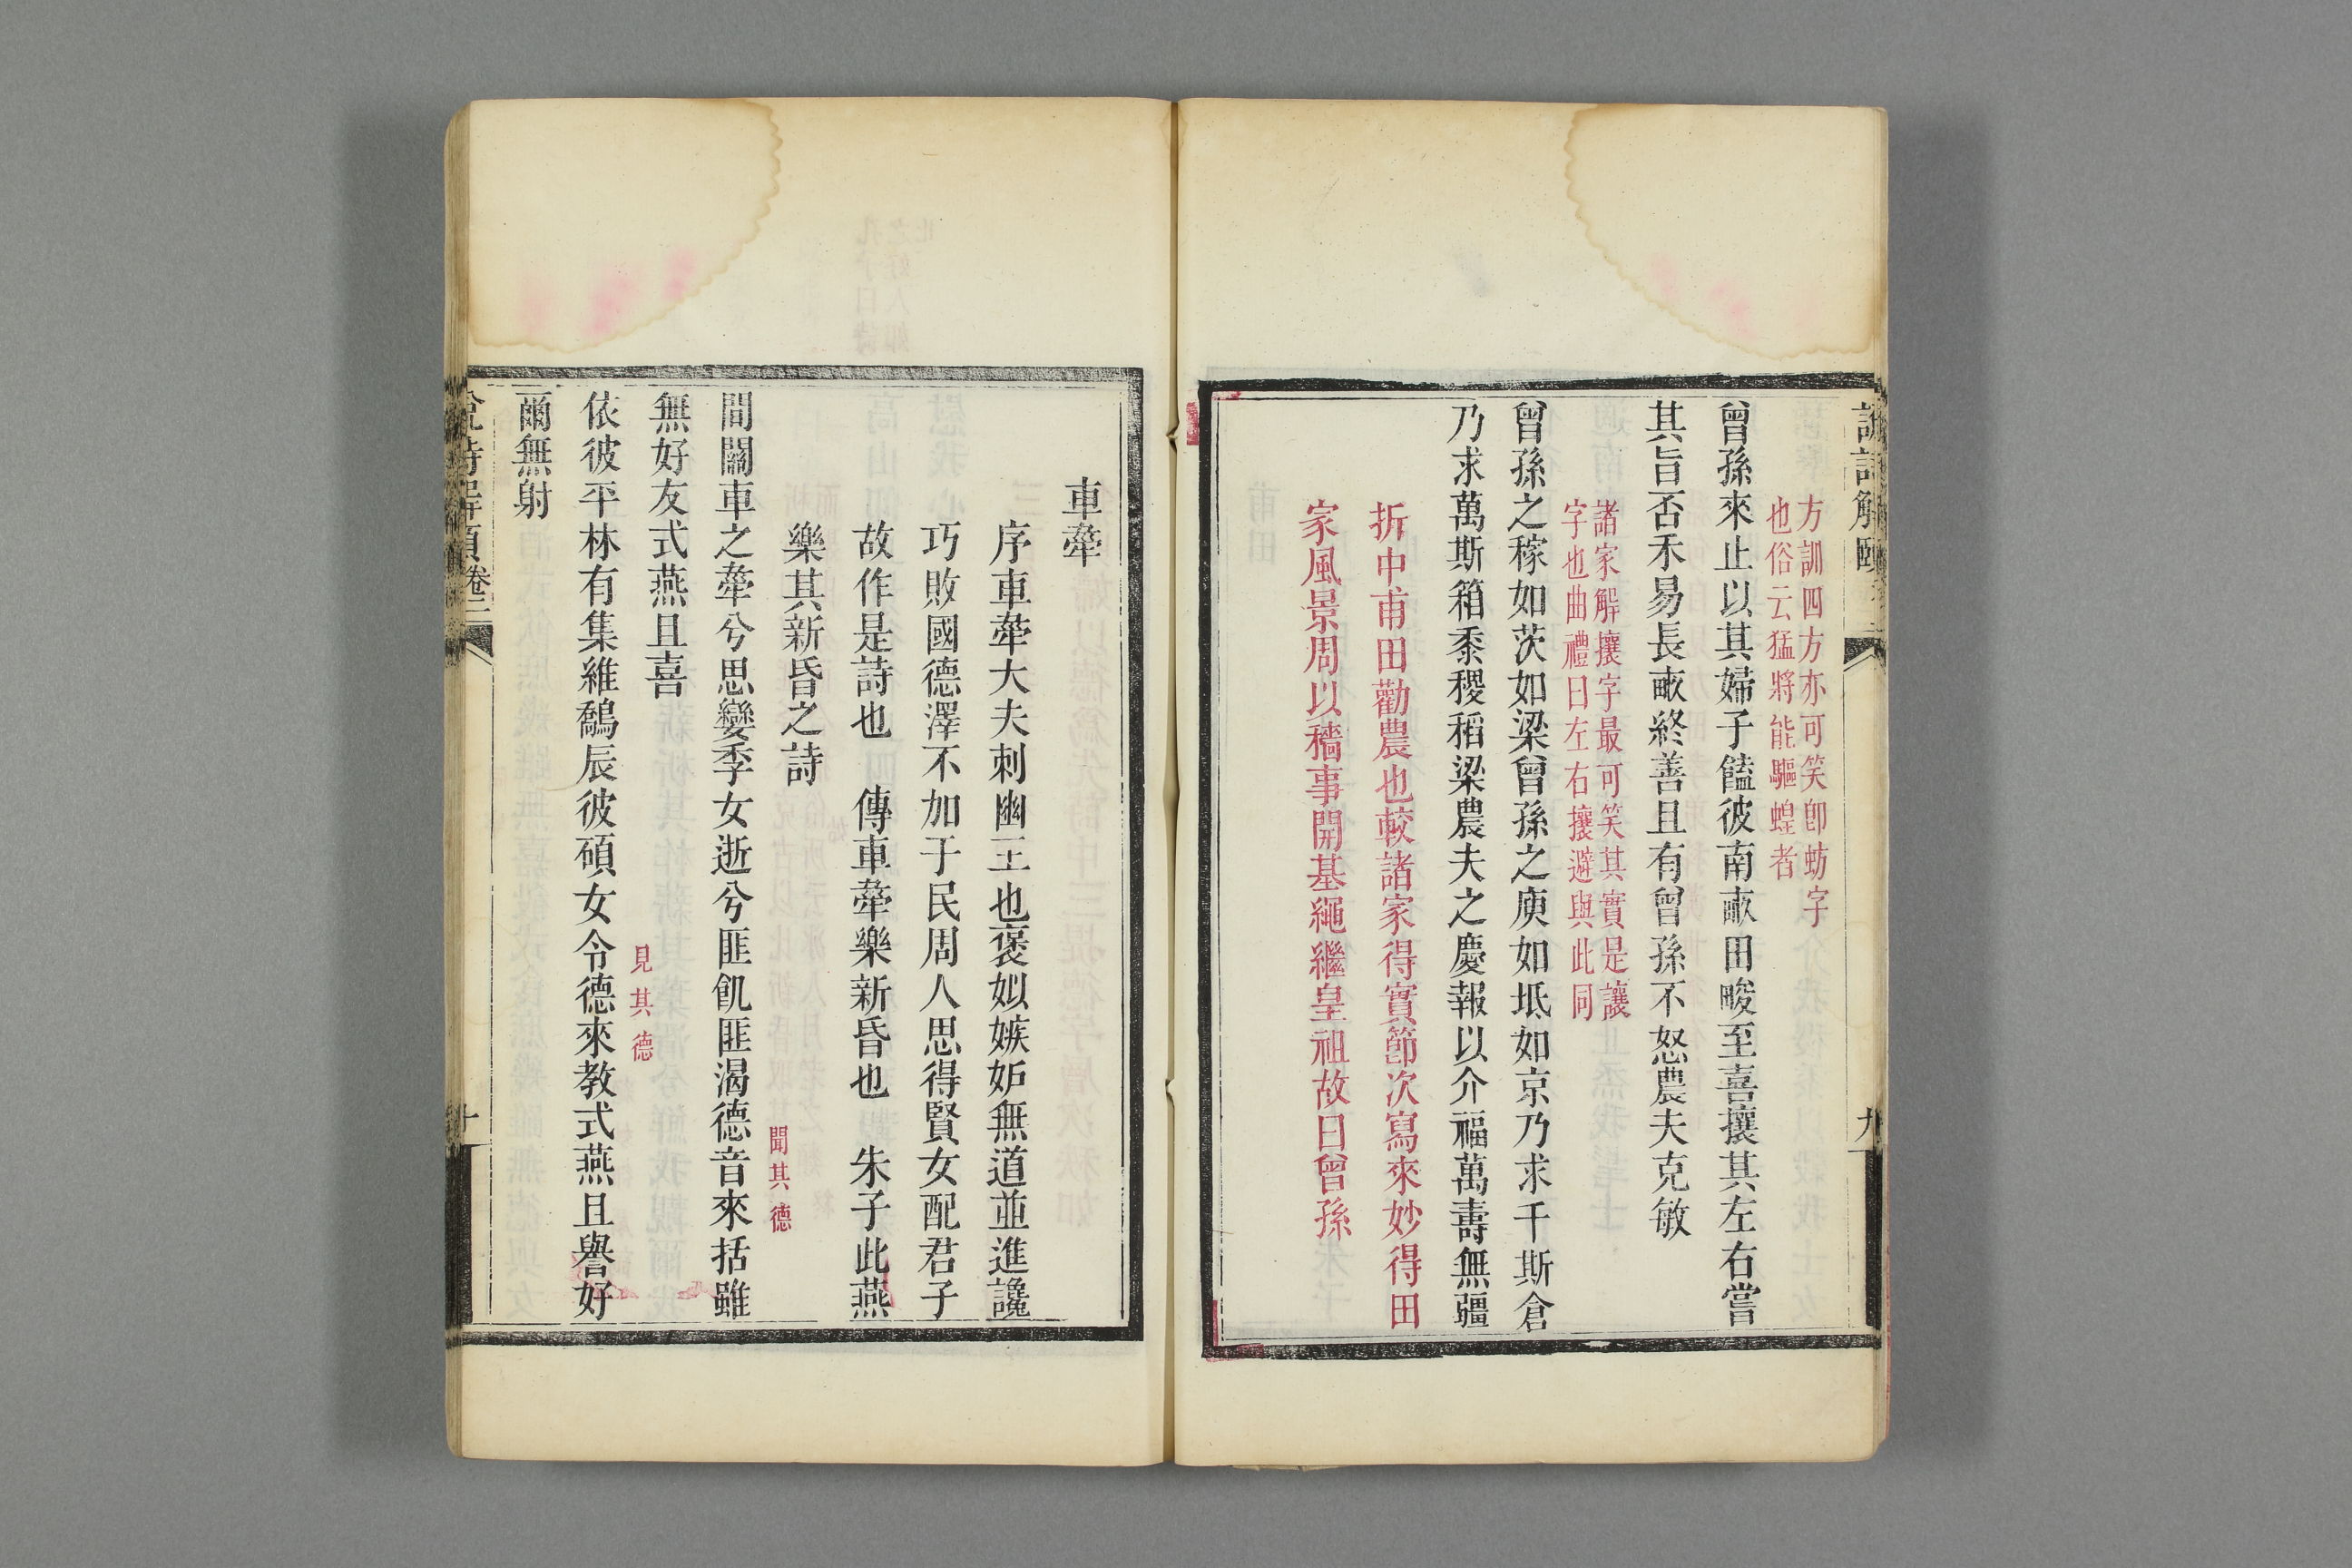 方訓四方亦可笑卽蚄字
也俗云猛將能驅蝗者
曾孫來止以其婦子饁彼南畝田畯至喜攘其左右嘗
其旨否禾易長畝終善且有曾孫不怒農夫克敏
諸家解攘字最可笑其實是讓
字也曲禮曰左右攘避與此同
曾孫之稼如茨如梁曾孫之庾如坻如京乃求千斯倉
乃求萬斯箱黍稷稻梁農夫之慶報以介福萬壽無疆
折中甫田勸農也較諸家得實節次寫來妙得田
家風景周以穡事開基繩繼皇祖故曰曾孫
九
車舝
序車舝大夫刺幽王也褒姒嫉妒無道並進讒
巧敗國德澤不加于民周人思得賢女配君子
故作是詩也 傳車舝樂新昏也 朱子此燕
樂其新昏之詩
聞其德
間關車之舝兮思孌季女逝兮匪飢匪渴德音來括雖
無好友式燕且喜
見其德
依彼平林有集維鷮辰彼碩女令德來教式燕且譽好
爾無射
說詩解頤 卷二
十